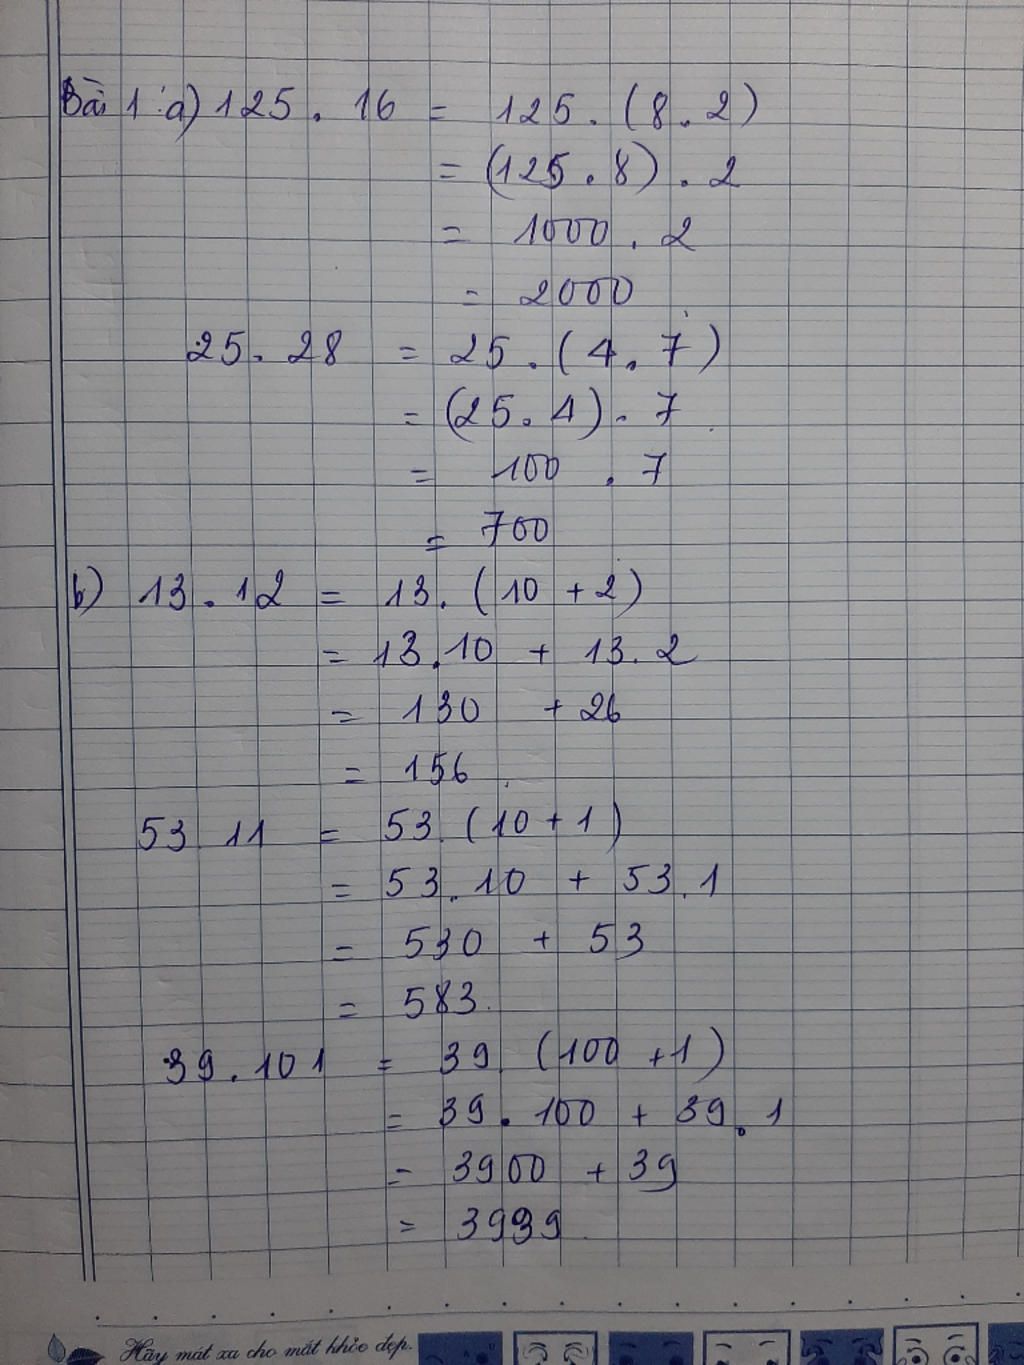 Bài 1: a) 125 . 16 = 125 . (8 . 2)
= (125 . 8) . 2
= 1000 . 2
= 2000
25 . 28 = 25 . (4 . 7)
= (25 . 4) . 7
= 100 . 7
= 700
b) 13 . 12 = 13 . (10 + 2)
= 13 . 10 + 13 . 2
= 130 + 26
= 156
53 11 = 53 . (10 + 1)
= 53 . 10 + 53 . 1
= 530 + 53
= 583
39 . 101 = 39 . (100 + 1)
= 39 . 100 + 39 . 1
= 3900 + 39
= 3939
Hãy mát xa cho mắt khỏe đẹp.